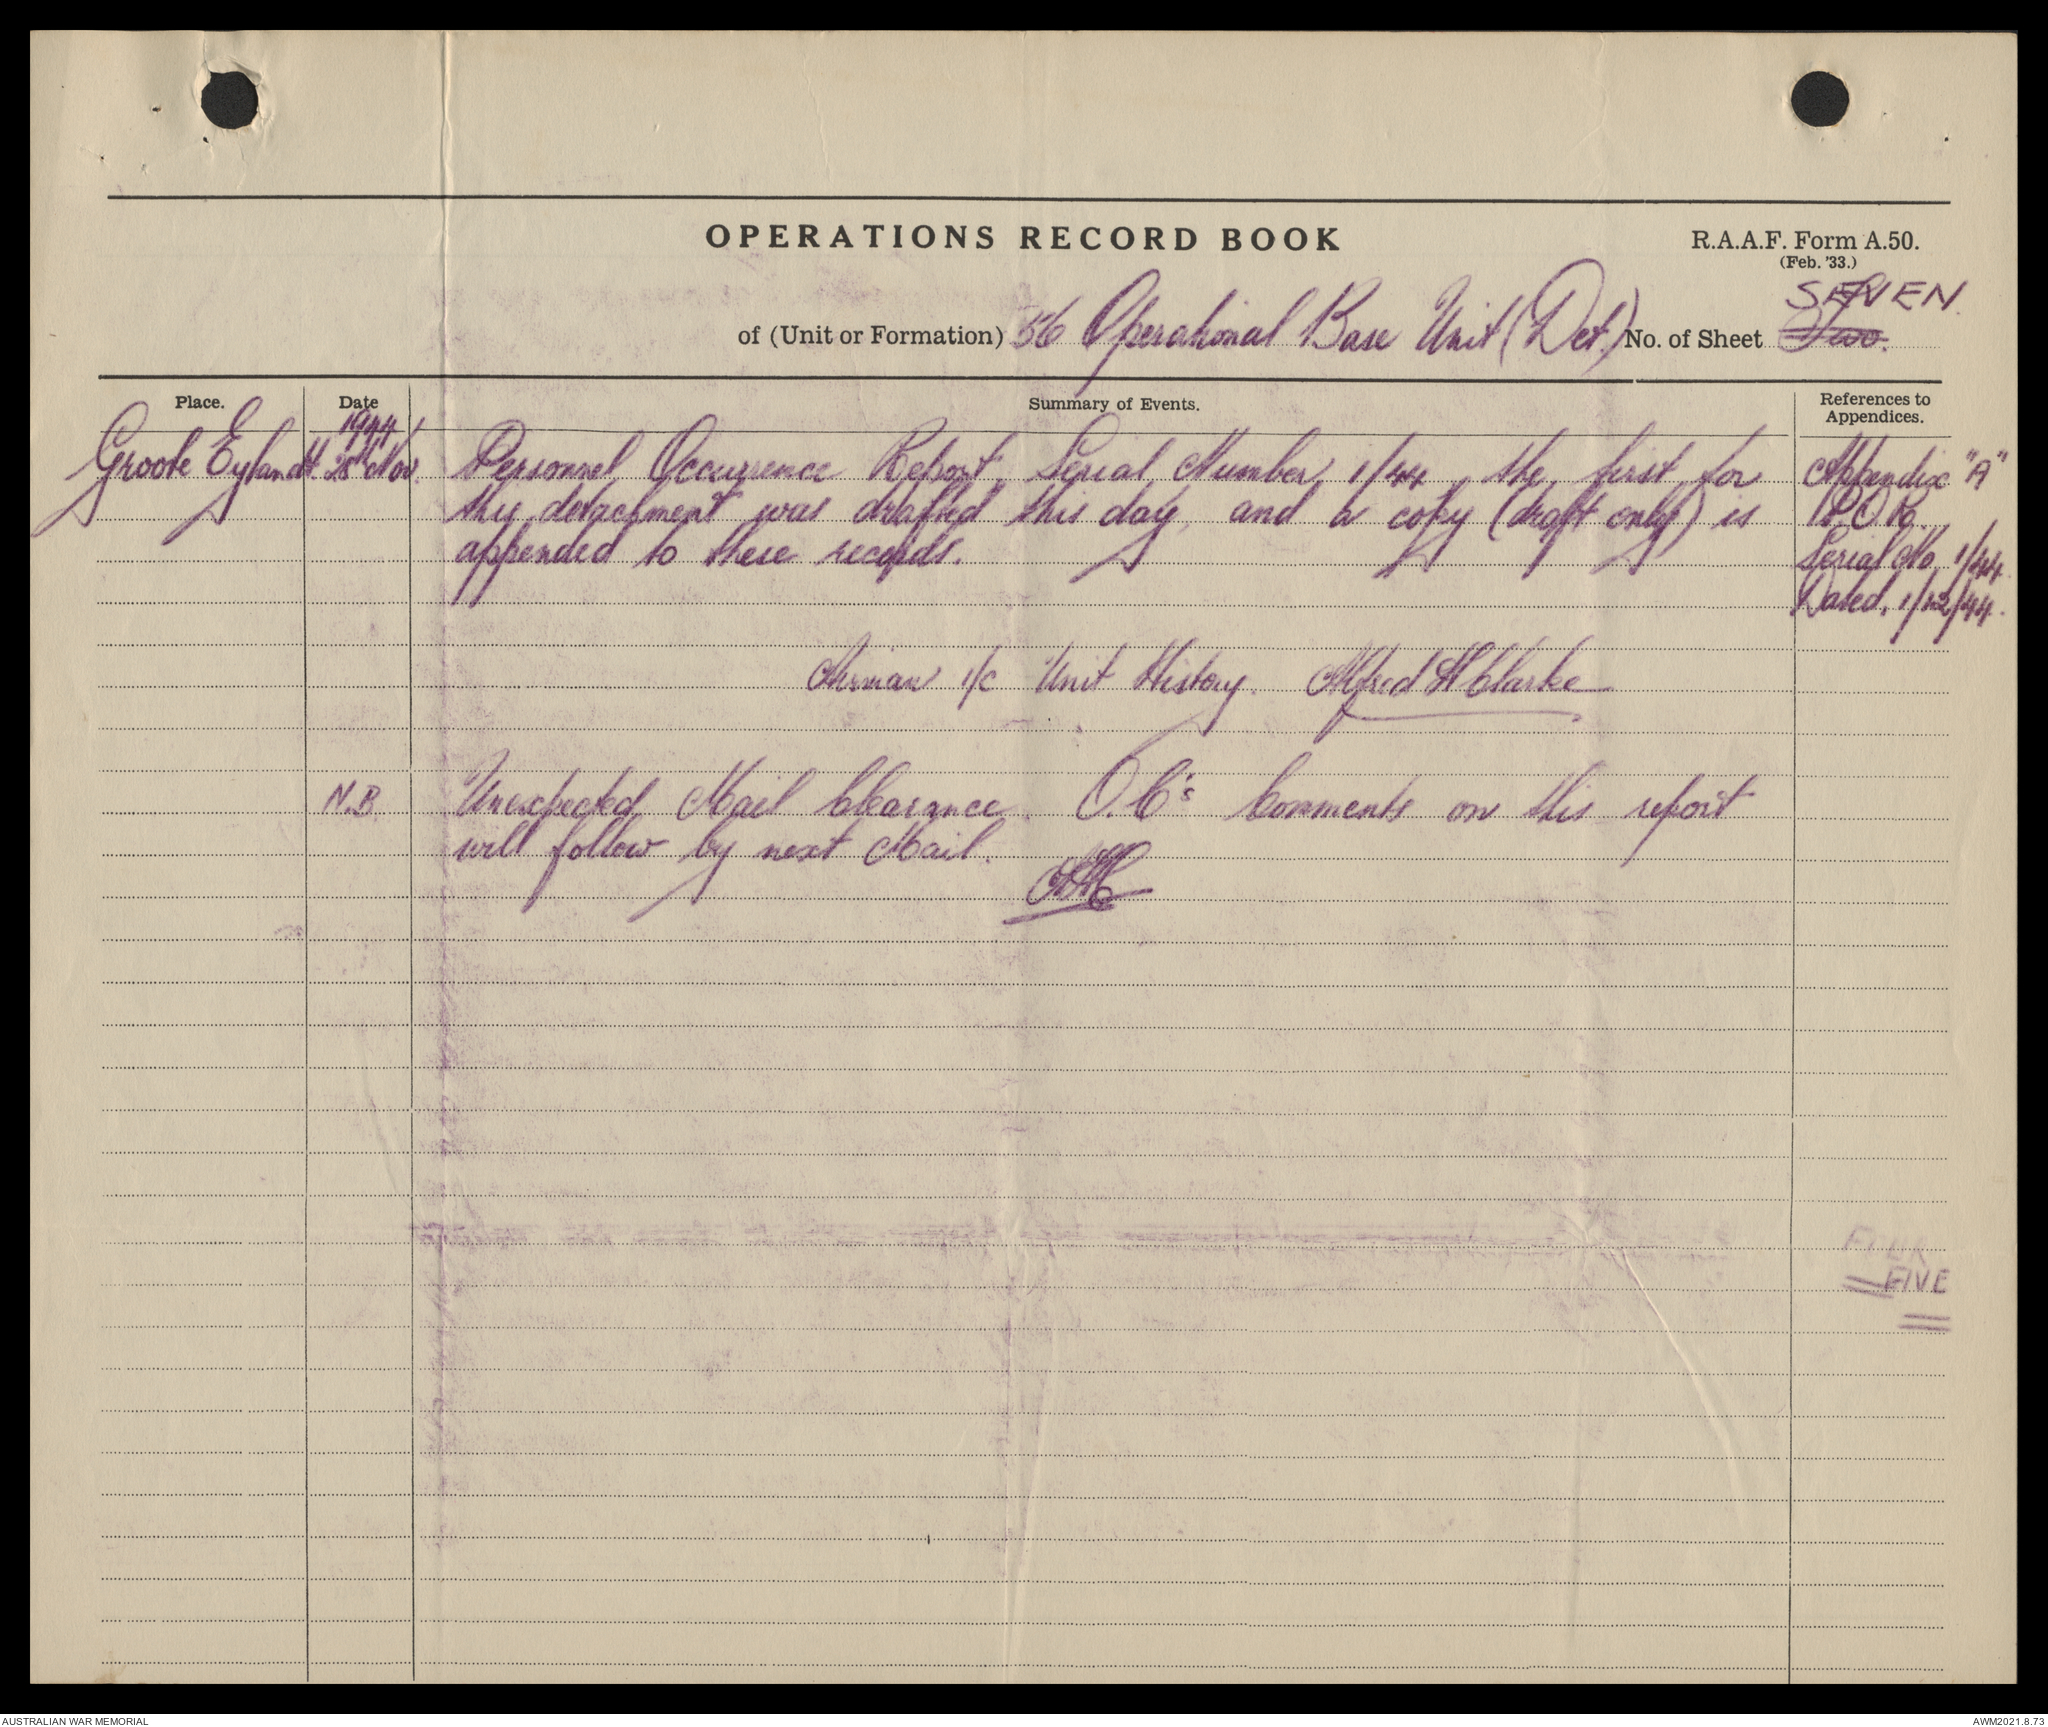 OPERATIONS RECORD BOOK
R.A.A.F. Form A.50.
(Feb. '33.)
SEVEN
of (Unit or Formation) 56 Operational Base Unit (Det.) No. of Sheet Two.
Place. Date Summary of Events. References to Appendices.
1944
Groote Eylandt. 28th Nov. Personnel Occurrence Report, Serial Number 1/44, the first for Appendix "A"
this detachment was drafted this day, and a copy (draft only) is P.O.R.
appended to these records. Serial No 1/44.
Dated, 1/12/44.
Airman i/c Unit History. Alfred H Clarke
N.B. Unexpected Mail Clearance. O.C's Comments on this report
will follow by next Mail.
AHC
FOUR
FIVE
AUSTRALIAN WAR MEMORIAL
AWM2021.8.73